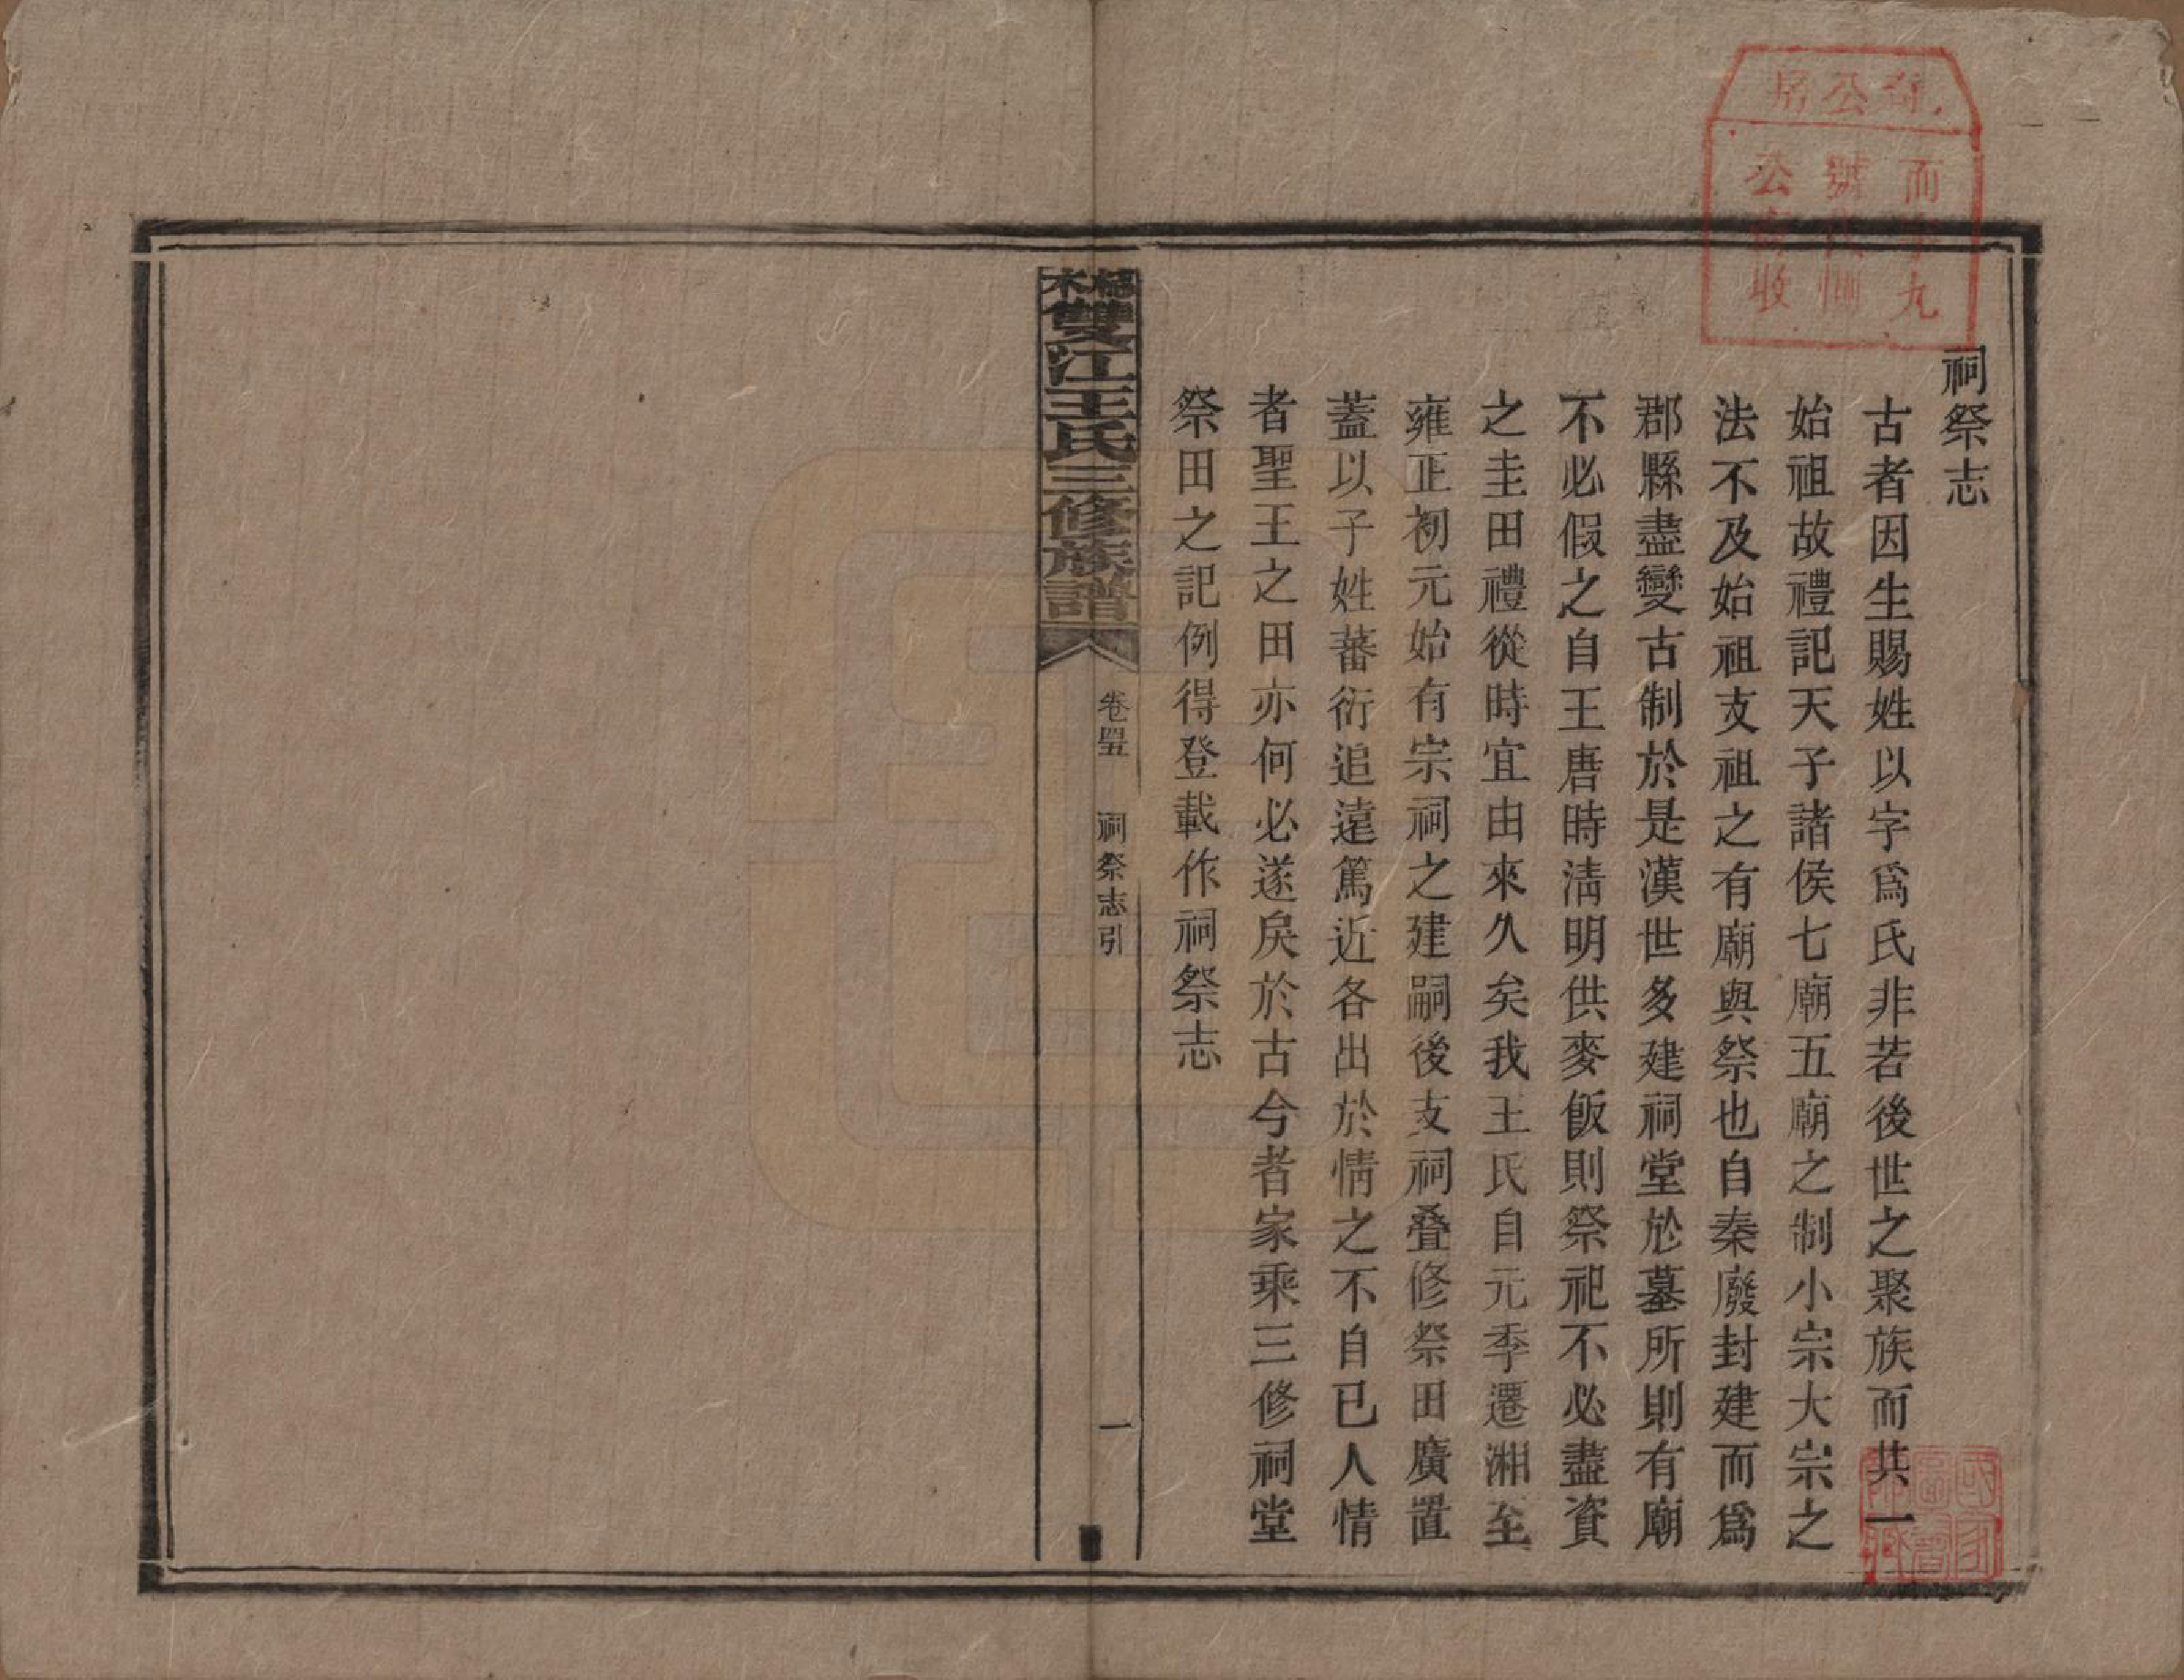 祠祭志
古者因生賜姓以字爲氏非若後世之聚族而共一
始祖故禮記天子諸侯七廟五廟之制小宗大宗之
法不及始祖支祖之有廟與祭也自秦廢封建而爲
郡縣盡變古制於是漢世多建祠堂於墓所則有廟
不必假之自王唐時清明供麥飯則祭祀不必盡資
之圭田禮從時宜由來久矣我王氏自元季遷湘至
雍正初元始有宗祠之建嗣後支祠叠修祭田廣置
蓋以子姓蕃衍追遠篤近各出於情之不自已人情
者聖王之田亦何必遂戾於古今者家乘三修祠堂
祭田之記例得登載作祠祭志
雙江王氏三修族譜
卷四五
祠祭志引
一
奇公房
而字九
號
公 收